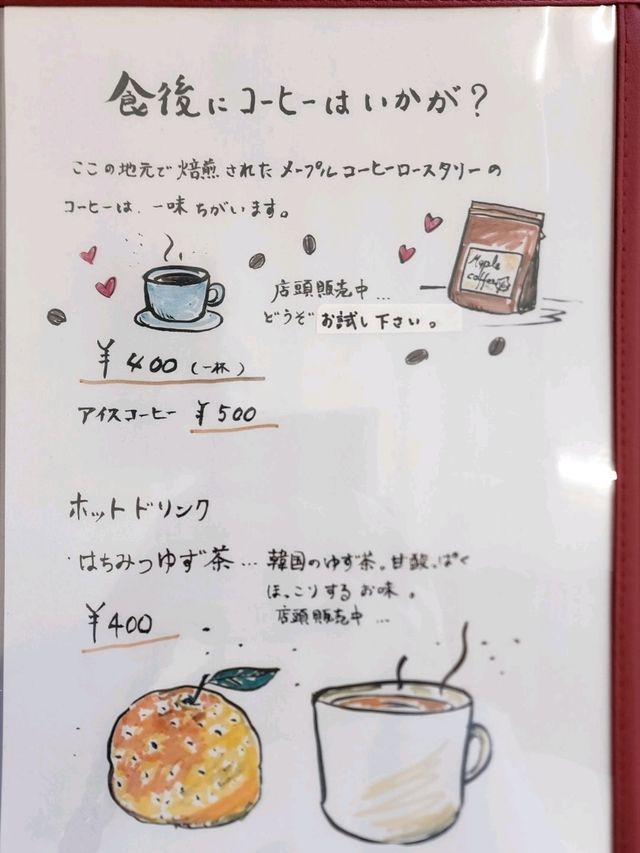 食後にコーヒーはいかが?
ここの地元で焙煎されたメープルコーヒーロースタリーの
コーヒーは、一味ちがいます。
Maple
coffee
店頭販売中...
どうぞお試し下さい。
¥400(一杯)
アイスコーヒー ¥500
ホットドリンク
はちみつゆず茶... 韓国のゆず茶。甘酸っぱく
ほっこりするお味。
店頭販売中...
¥400